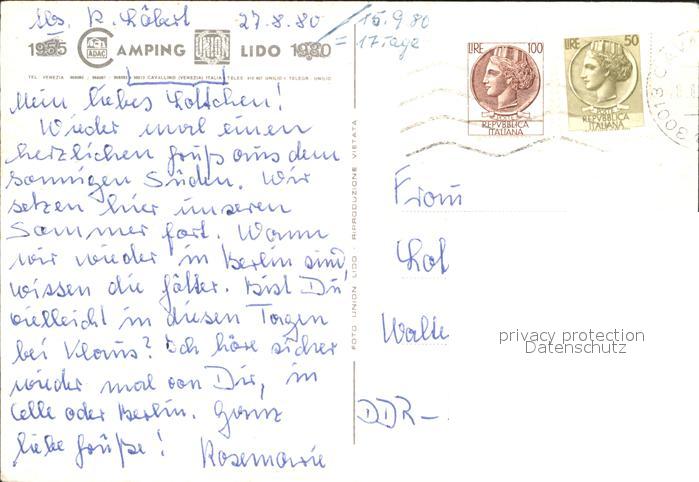 Abs. R. Läbert 27.8.80
15.9.80
= 17 Tage
1955 ADAC CAMPING UNION LIDO 1980
30013 CAVALLINO (VENEZIA) ITALIA
Mein liebes Lottchen!
Wieder mal einen
herzlichen Gruß aus dem
sonnigen Süden. Wir
setzen hier unseren
Sommer fort. Wann
wir wieder in Berlin sind,
wissen die Götter. Bist Du
vielleicht in diesen Tagen
bei Klaus? Ich höre sicher
wieder mal von Dir, in
Celle oder Berlin. Ganz
liebe Grüße!
Rosemarie
FOTO UNION LIDO - RIPRODUZIONE VIETATA
LIRE 100
POSTE
REPVBBLICA
ITALIANA
LIRE 50
POSTE
REPVBBLICA
ITALIANA
30013 C
Frau
Lot
Walte
DDR-
privacy protection
Datenschutz